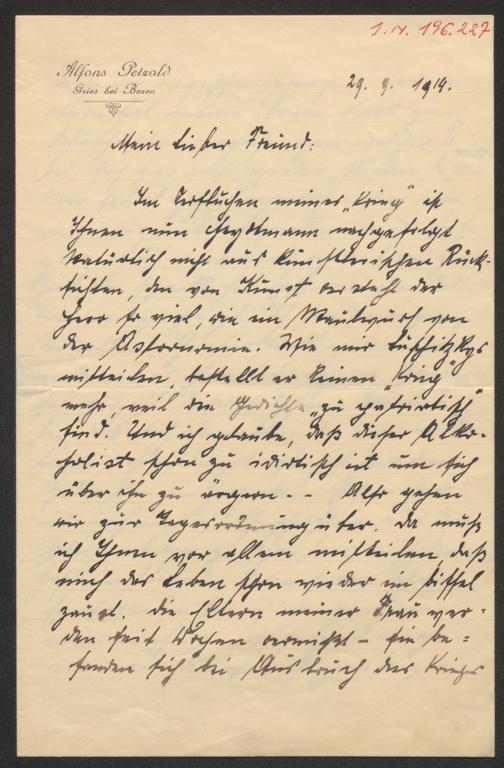 I. N. 196.227
Alfons Petzold
Gries bei Bozen
29. 9. 1914.
Mein lieber Freund:
Im Verfluchen meines „Krieg" ist
Ihnen nun nachgefolgt
natürlich nicht aus künstlerischen Rück-
sichten, den von Kunst versteht der
Herr so viel, wie ein Maulwurf von
der Astronomie. Wie mir
mitteilen, bestellt er keinen „Krieg"
mehr, weil die Gedichte „zu patriotisch"
sind. Und ich glaube, daß dieser Alko-
holist schon zu idiotisch ist um sich
über ihn zu ärgern. - - Also gehen
wir zur Tagesordnung über. Da muß
ich Ihnen vor allem mitteilen, daß
mich das Leben schon wieder im
zaust. Die Eltern meiner Frau wer-
den seit Wochen vermißt - sie be=
fanden sich bei Ausbruch des Kriegs